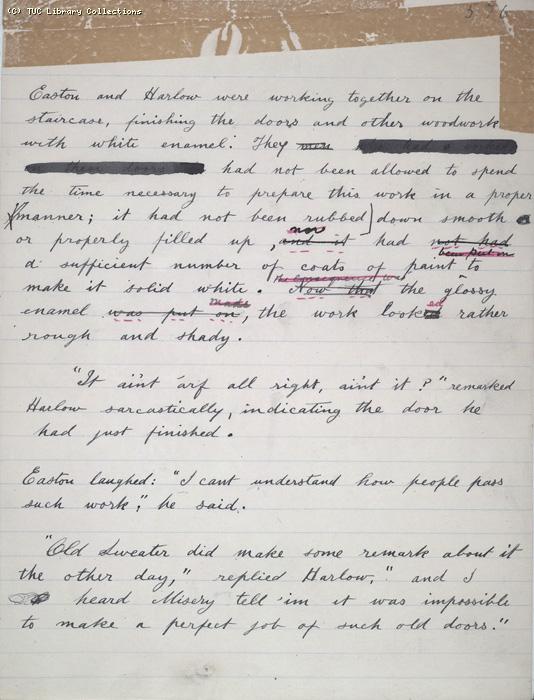 (C) TUC Library Collections
Easton and Harlow were working together on the
staircase, finishing the doors and other woodwork
with white enamel. They
had not been allowed to spend
the time necessary to prepare this work in a proper
manner; it had not been rubbed down smooth
nor
or properly filled up, and it had not had
been put on
a sufficient number of coats of paint to
make it solid white. Now that the glossy
made
enamel was put on, the work looked rather
rough and shady.
"It ain't 'arf all right, ain't it?" remarked
Harlow sarcastically, indicating the door he
had just finished.
Easton laughed: "I cant understand how people pass
such work," he said.
"Old Sweater did make some remark about it
the other day," replied Harlow, "and I
heard Misery tell 'im it was impossible
to make a perfect job of such old doors."